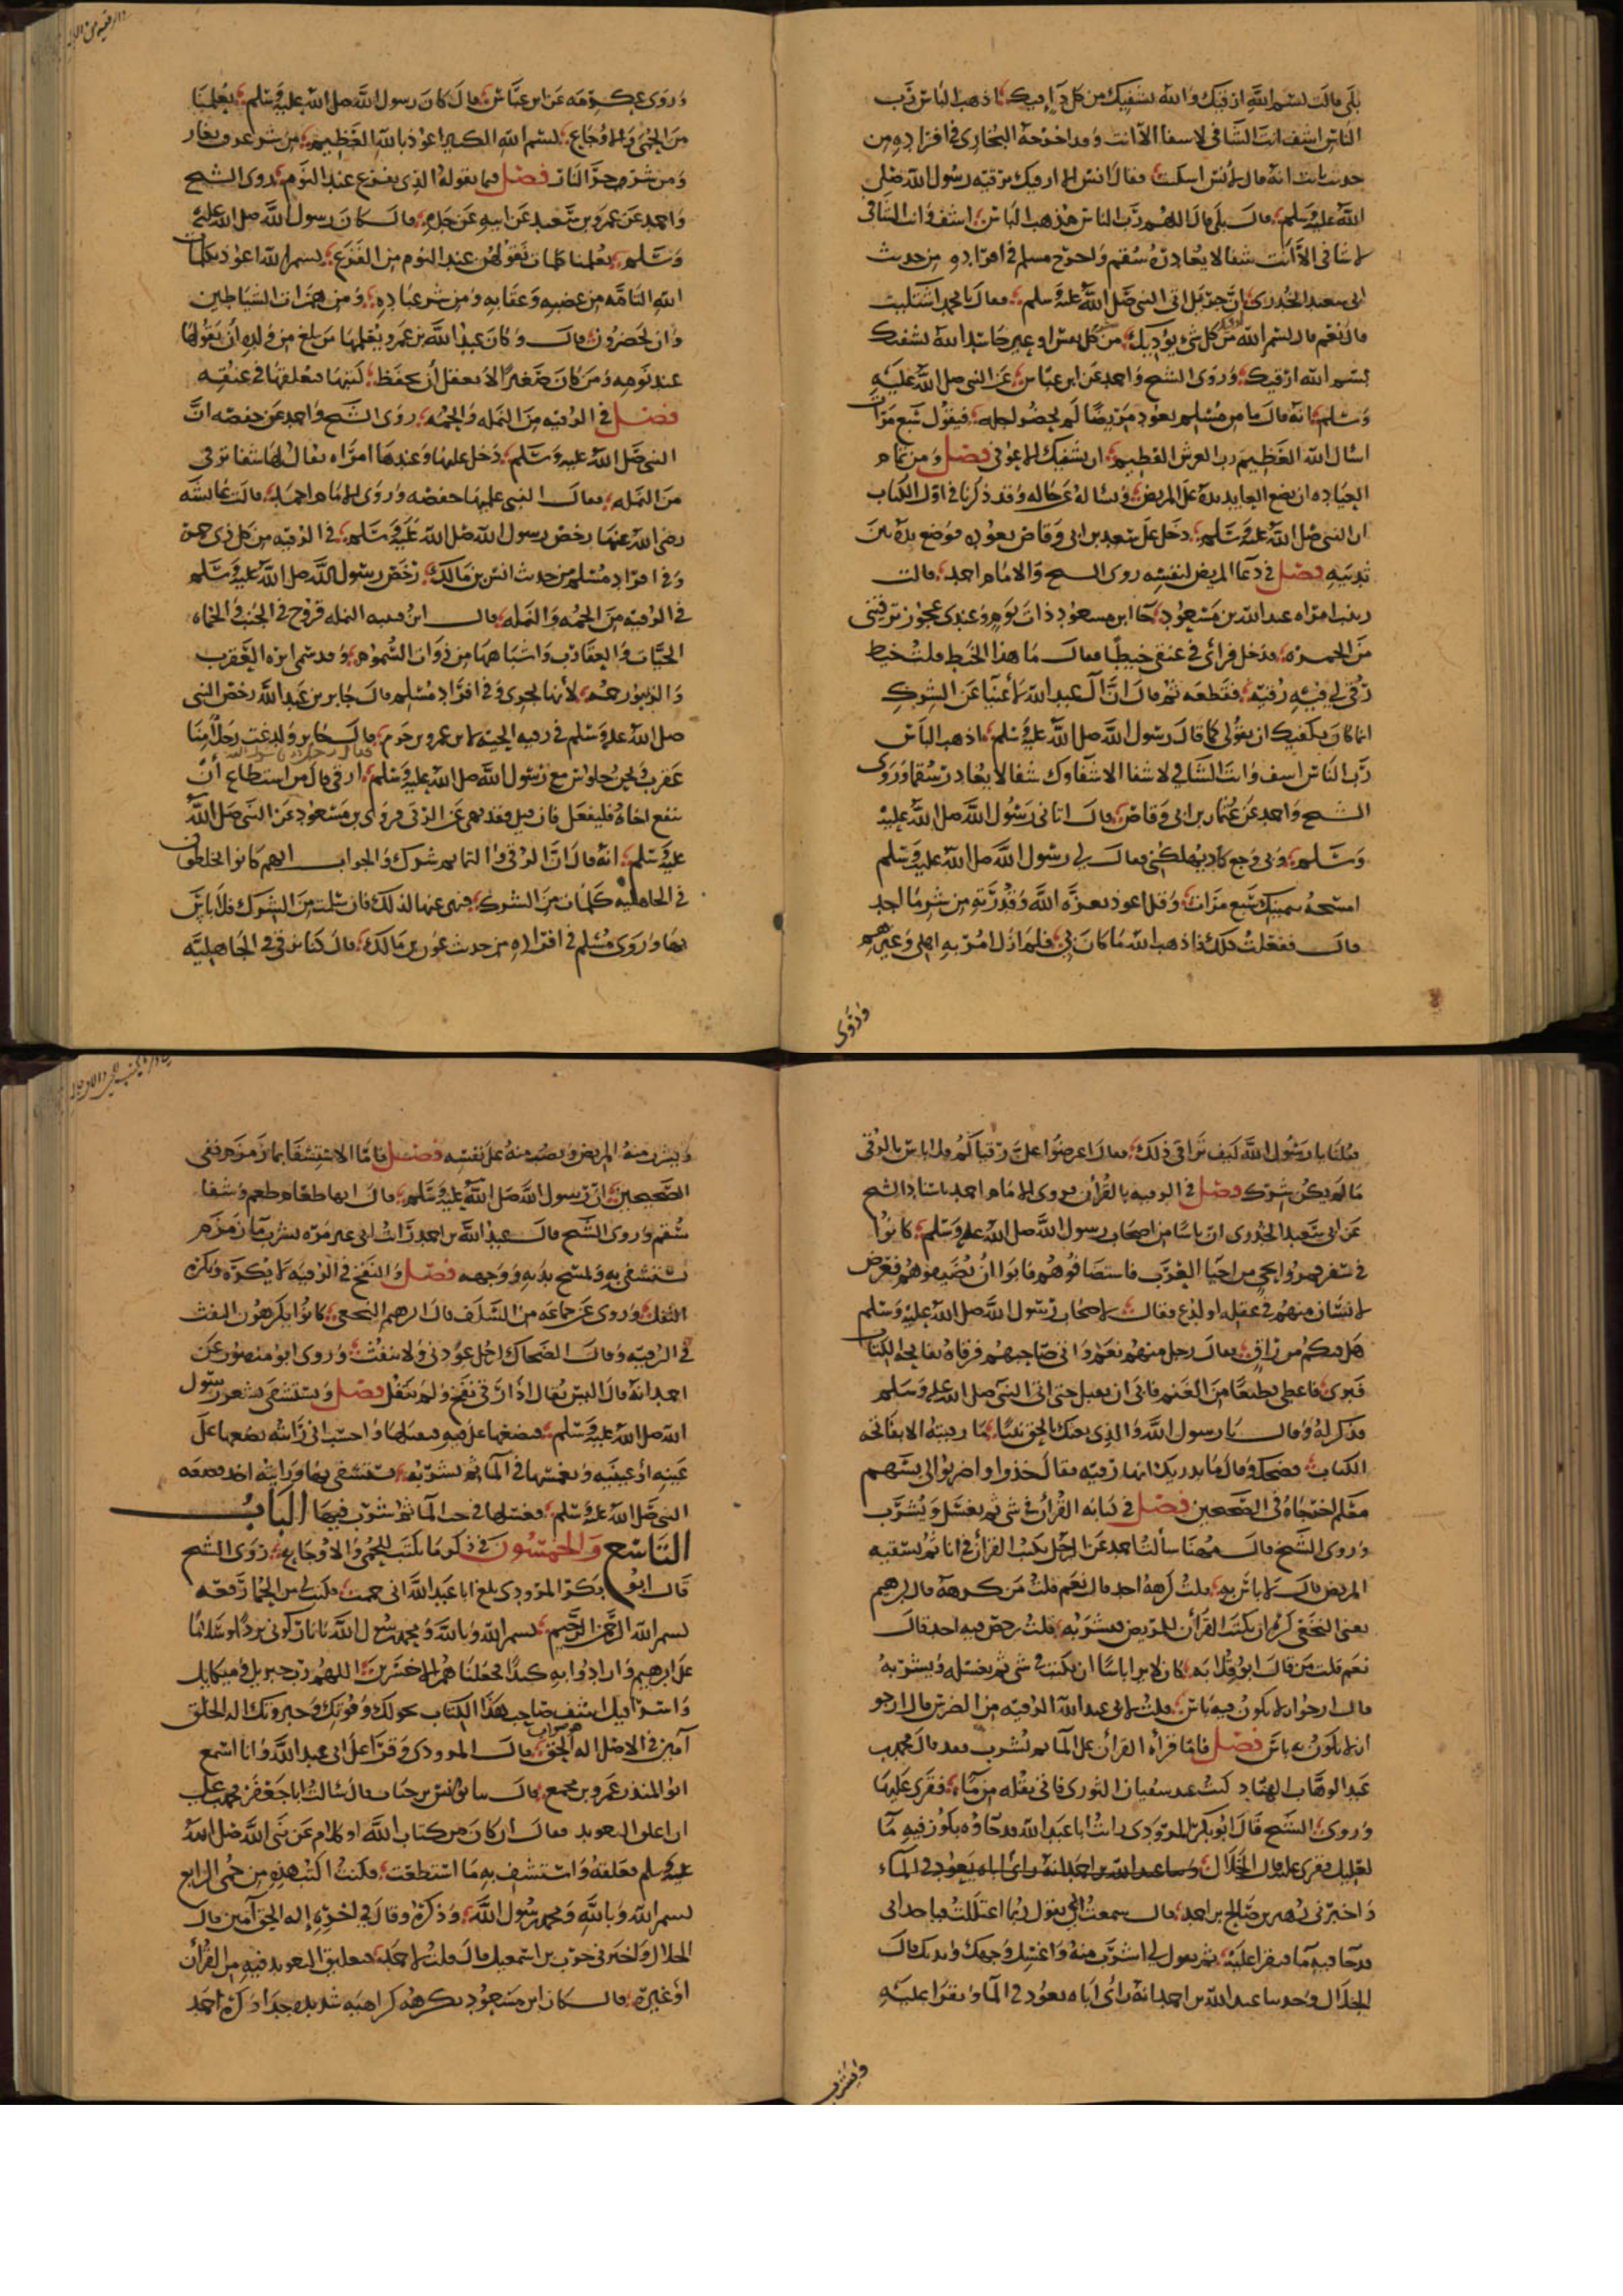 بلى قالت بسم الله ارقيك والله يشفيك من كل داء فيك اذهب الباس رب
الناس اشف انت الشافي لا شفا الا انت وقد اخرجه البخاري في افراده من
حديث ثابت انه قال لانس اشتكيت فقال انس الا ارقيك برقية رسول الله صلى
الله عليه وسلم قال بلى قال اللهم رب الناس مذهب الباس اشف وانت الشافي
لا شافي الا انت شفا لا يغادر سقم واخرج مسلم في افراده من حديث
ابي سعيد الخدري ان جبريل اتى النبي صلى الله عليه وسلم فقال يا محمد اشتكيت
قال نعم قال بسم الله ارقيك من كل شي يؤذيك من كل نفس او عين حاسد الله يشفيك
بسم الله ارقيك وروى الشيخ واحمد عن ابن عباس عن النبي صلى الله عليه
وسلم انه قال ما من مسلم يعود مريضا لم يحضر اجله فيقول سبع مرات
اسال الله العظيم رب العرش العظيم ان يشفيك الا عوفي فصل ومن تمام
العيادة ان يضع العايد يده على المريض ويساله عن حاله وقد ذكرنا في اول الكتاب
ان النبي صلى الله عليه وسلم دخل على سعد بن ابي وقاص يعوده فوضع يده بين
ثدييه فصل في دعا المريض لنفسه روى الشيخ والامام احمد قالت
زينب امراه عبد الله بن مسعود جا ابن مسعود ذات يوم وعندي عجوز ترقيني
من الحمره فدخل فراى في عنقي خيطا فقال ما هذا الخيط قلت خيط
رقي لي فيه رقية فقطعه ثم قال ان آل عبد الله لاغنيا عن الشرك
انما كان يكفيك ان تقولي كما قال رسول الله صلى الله عليه وسلم اذهب الباس
رب الناس اشف وانت الشافي لا شفا الا شفاوك شفا لا يغادر سقما وروى
الشيخ واحمد عن عثمان بن ابي وقاص قال اتاني رسول الله صلى الله عليه
وسلم وبي وجع كاد يهلكني فقال لي رسول الله صلى الله عليه وسلم
امسحه بيمينك سبع مرات وقل اعوذ بعزة الله وقدرته من شر ما اجد
قال ففعلت ذلك فاذهب الله ما كان بي فلم ازل آمر به اهلي وغيرهم
وروى
وروى عكرمه عن ابن عباس قال كان رسول الله صلى الله عليه وسلم يعلمنا
من الحمى والاوجاع بسم الله الكبير اعوذ بالله العظيم من شر عرق نعار
ومن شر حر النار فصل فيما يقوله الذي يفزع عند النوم روى الشيخ
واحمد عن عمرو بن شعيب عن ابيه عن جده قال كان رسول الله صلى الله عليه
وسلم يعلمنا كلمات نقولهن عند النوم من الفزع بسم الله اعوذ بكلمات
الله التامه من غضبه وعقابه ومن شر عباده ومن همزات الشياطين
وان يحضرون قال وكان عبد الله بن عمرو يعلمها من بلغ من ولده ان يقولها
عند نومه ومن كان صغيرا لا يعقل ان يحفظ كتبها فعلقها في عنقه
فصل في الرقيه من النمله والحمه روى الشيخ واحمد عن حفصه ان
النبي صلى الله عليه وسلم دخل عليها وعندها امراه يقال لها شفا ترقي
من النمله فقال النبي عليها حفصه وروى الامام احمد قالت عايشه
رضي الله عنها رخص رسول الله صلى الله عليه وسلم في الرقيه من كل ذي حمة
وفي افراد مسلم من حديث انس بن مالك رخص رسول الله صلى الله عليه وسلم
في الرقيه من الحمه والنمله قال ابن قتيبه النمله قروح في الجنب والحماه
الحيات والعقارب واشباهها من ذوات السموم وقد سمى ابره العقرب
والزنبور حمه لانها تجري وفي افراد مسلم قال جابر بن عبد الله رخص النبي
صلى الله عليه وسلم في رقيه الحيه لابن عمرو بن حزم قال جابر ولدغت رجلا منا
عقرب ونحن جلوس مع رسول الله صلى الله عليه وسلم فقال رجل يا رسول الله ارقي قال من استطاع ان
ينفع اخاه فليفعل فان قيل فقد نهي عن الرقى فروى بن مسعود عن النبي صلى الله
عليه وسلم انه قال ان الرقى والتمايم شرك والجواب انهم كانوا يخلطون
في الجاهليه كلمات من الشرك فنهى عنها لذلك فان سلمت من الشرك فلا باس
بها وروى مسلم في افراده من حديث عون بن مالك قال كنا نرقي في الجاهليه
فقلنا يا رسول الله كيف ترى في ذلك فقال اعرضوا علي رقياكم فلا باس بالرقى
ما لم يكن شرك فصل في الرقيه بالقرآن فروى الامام احمد باسناد الشيخ
عن ابي سعيد الخدري ان ناسا من اصحاب رسول الله صلى الله عليه وسلم كانوا
في سفر فمروا بحي من احيا العرب فاستضافوهم فابوا ان يضيفوهم فعرض
لانسان منهم في عقله او لدغ فقال لاصحاب رسول الله صلى الله عليه وسلم
هل فيكم من راق فقال رجل منهم نعم واتى صاحبهم فرقاه بفاتحة الكتاب
فبرى فاعطي قطيعا من الغنم فابى ان يقبل حتى اتى النبي صلى الله عليه وسلم
فذكر له وقال يا رسول الله والذي بعثك بالحق نبيا ما رقيته الا بفاتحة
الكتاب فضحك وقال ما يدريك انها رقيه فقال خذوا واضربوا لي بسهم
معكم اخرجاه في الصحيحين فصل في كتابه القرآن في شي ثم يغسل ويشرب
وروى الشيخ قال مهنا سألت احمد عن الرجل يكتب القرآن في انا ثم يسقيه
المريض قال لا باس به قلت كرهه احد قال نعم قلت من كرهه قال ابرهيم
يعني النخعي كره ان يكتب القرآن للمريض فيشربه قلت رخص فيه احد قال
نعم قلت من قال ابو قلابه كان لا يرى باسا ان يكتب في شي ثم يغسله ويشربه
قال ارجوا ان لا يكون فيه باس قلت لابي عبد الله الرقيه من الضرس قال ارجو
ان لا يكون به باس فصل فاما قراه القرآن على الما ثم يشرب فقد قال محمد بن
عبد الوهاب القناد كنت عند سفيان الثوري فاتي بقله من ماء فقرى عليها
وروى الشيخ قال ابو بكر المروذي رايت ابا عبد الله قد جاوه بكوز فيه ما
لعليل فقرى عليه قال الخلال وحدثنا عبد الله بن احمد انه راى اباه يعوذ في الماء
واخبرني زهير بن صالح بن احمد قال سمعت ابي يقول ربما اعتللت فياخذ ابي
قدحا فيه ما فيقرا عليه ثم يقول لي اشرب منه واغسل وجهك ويديك قال
الخلال وحدثنا عبد الله بن احمد انه راى اباه يعوذ في الما ويقرا عليه
ويشرب
ويشرب منه المريض ويصب منه على نفسه فصل فاما الاستشفا بما زمزم ففي
الصحيحين ان رسول الله صلى الله عليه وسلم قال انها طعام طعم وشفا
سقم وروى الشيخ قال عبد الله بن احمد رايت ابي غير مره يشرب ما زمزم
يستشفي به ويمسح يديه ووجهه فصل والنفخ في الرقيه لا يكره ويكره
التفل وروي عن جماعه من السلف قال ابرهيم النخعي كانوا يكرهون النفث
في الرقيه وقال الضحاك لرجل عوذني ولا تنفث وروى ابو منصور عن
احمد انه قال اليس يقال اذا رقى نفخ ولم يتفل فصل ويستشفى بشعر رسول
الله صلى الله عليه وسلم فيضعها على فيه فيقبلها واحسب اني رايته يضعها على
عينه او عينيه ويغمسها في الما ثم يشربه يستشفي بها ورايته اخذ قصعه
النبي صلى الله عليه وسلم فغسلها في حب الما ثم شرب فيها الباب
التاسع والخمسون في ذكر ما يكتب للحمى والاوجاع روى الشيخ
قال ابو بكر المروذي بلغ ابا عبد الله اني حممت فكتب لي من الحما رقعه
بسم الله الرحمن الرحيم بسم الله وبالله ومحمد رسول الله يا نار كوني بردا وسلاما
على ابرهيم وارادوا به كيدا فجعلناهم الاخسرين اللهم رب جبريل وميكايل
واسرافيل اشف صاحب هذا الكتاب بحولك وقوتك وجبروتك اله الخلق
آمين في الاصل اله الحق صوابه قال المروذي وقرا على ابي عبد الله وانا اسمع
ابو المنذر عمرو بن مجمع قال ثنا يونس بن حباب قال سالت ابا جعفر محمد بن علي
ان اعلق التعويذ فقال ان كان من كتاب الله او كلام عن نبي الله صلى الله
عليه وسلم فعلقه واستشف به ما استطعت فكنت اكتب هذه من حمى الرابع
بسم الله وبالله ومحمد رسول الله وذكره وقال في اخره إله الحق آمين قال
الخلال واخبرني حرب بن اسمعيل قال قلت لاحمد فتعليق التعويذ فيه من القرآن
او غيره قال كان ابن مسعود يكرهه كراهيه شديده جدا وكره احمد